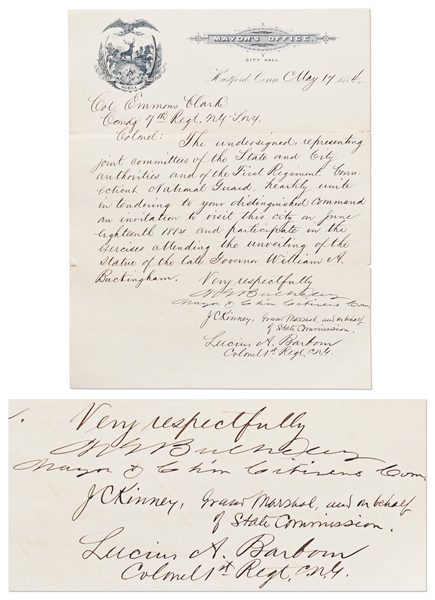 MAYOR'S OFFICE,
CITY HALL
Hartford Conn May 17 1884.
Col Emmons Clark
Comdg 7th Regt, N.Y. S.N.Y.
Colonel:
The undersigned, representing
joint committees of the State and City
authorities and of the First Regiment, Conn-
ecticut National Guard, heartily unite
in tendering to your distinguished command
an invitation to visit this city on June
eighteenth 1884 and participate in the
exercises attending the unveiling of the
Statue of the late Governor William A.
Buckingham.
Very respectfully
Mayor & Chm Citizens Com
J C Kinney, Grand Marshal, and on behalf
of State Commission.
Lucius A. Barbour
Colonel 1st Regt, C.N.G.
Very respectfully
Mayor & Chm Citizens Com
J C Kinney, Grand Marshal, and on behalf
of State Commission.
Lucius A. Barbour
Colonel 1st Regt, C.N.G.